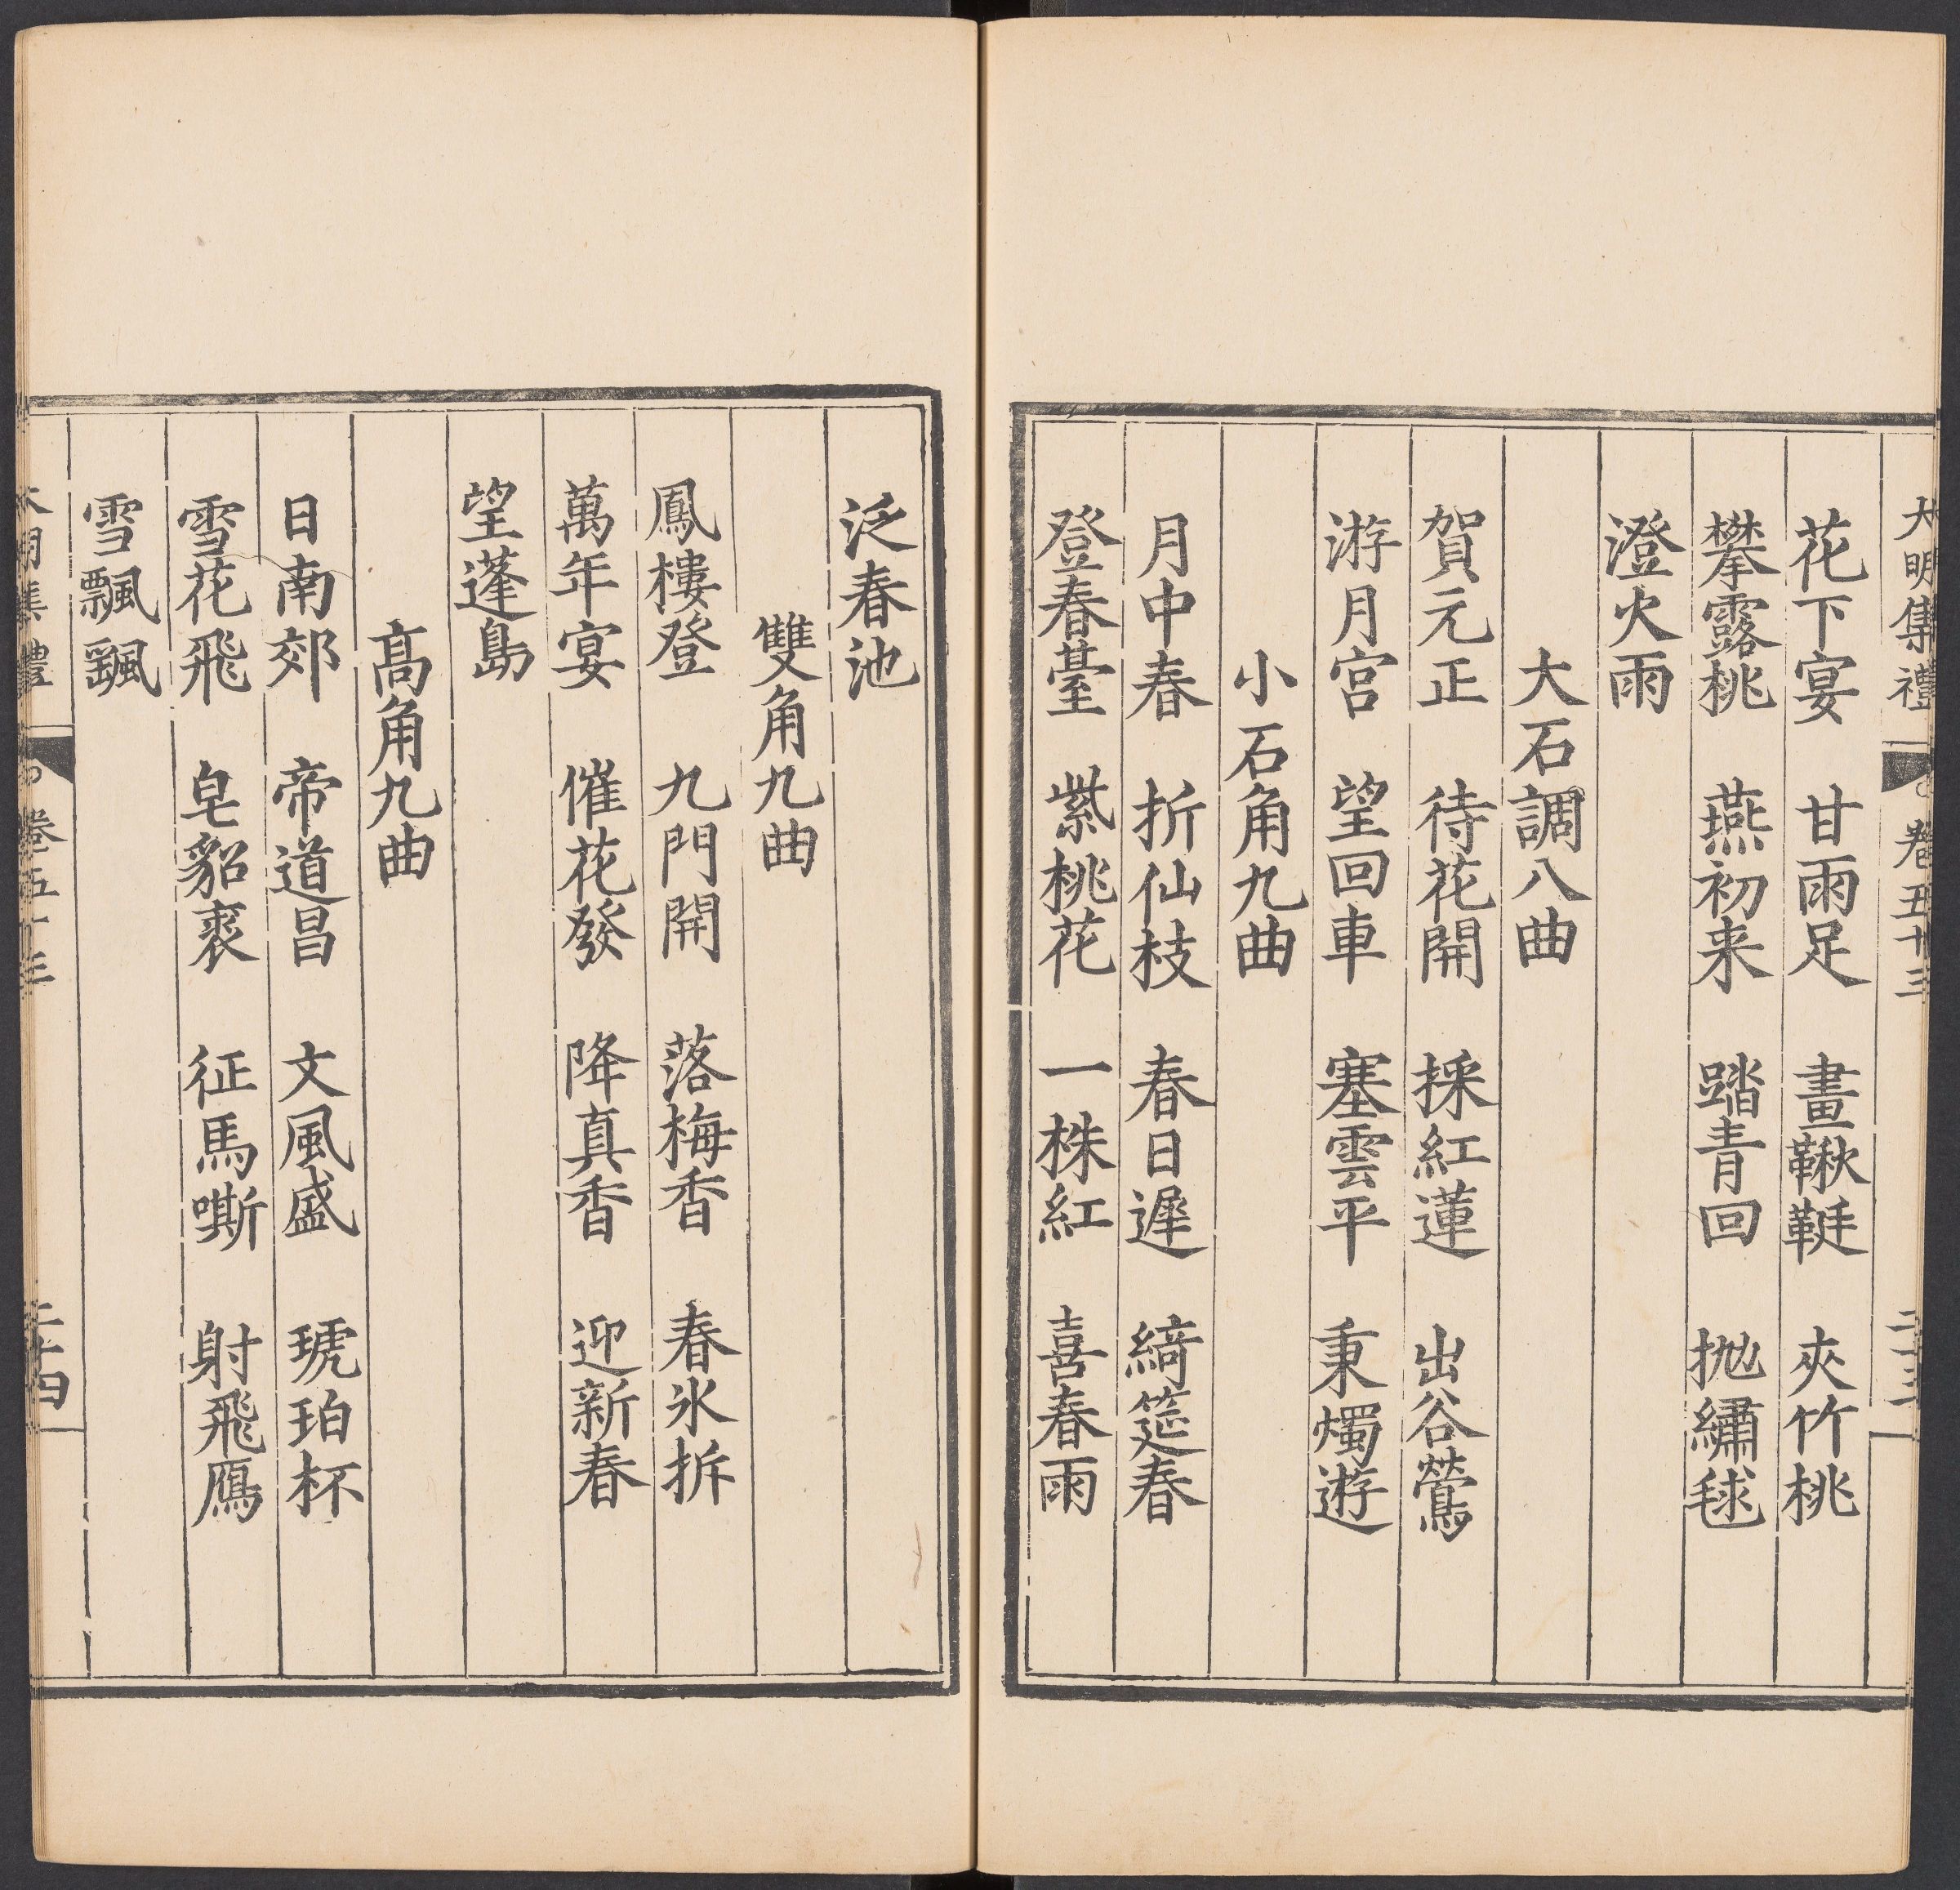 大明集禮 卷五十三 二十三
花下宴 甘雨足 畫鞦韆 夾竹桃
攀露桃 燕初来 踏青回 抛繡毬
澄火雨
大石調八曲
賀元正 待花開 採紅蓮 出谷鶯
游月宮 望回車 塞雲平 秉燭遊
小石角九曲
月中春 折仙枝 春日遲 綺筵春
登春臺 紫桃花 一株紅 喜春雨
泛春池
雙角九曲
鳳樓登 九門開 落梅香 春氷拆
萬年宴 催花發 降真香 迎新春
望蓬島
高角九曲
日南郊 帝道昌 文風盛 琥珀杯
雪花飛 皂貂裘 征馬嘶 射飛鴈
雪飄颻
大明集禮 卷五十三 二十四